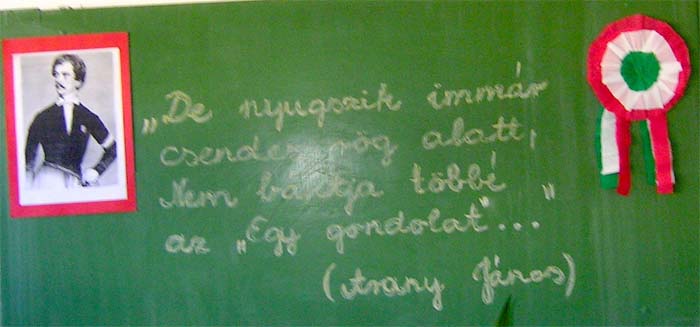 „De nyugszik immár
csendes rög alatt,
Nem bántja többé
az „Egy gondolat"..."
(Arany János)